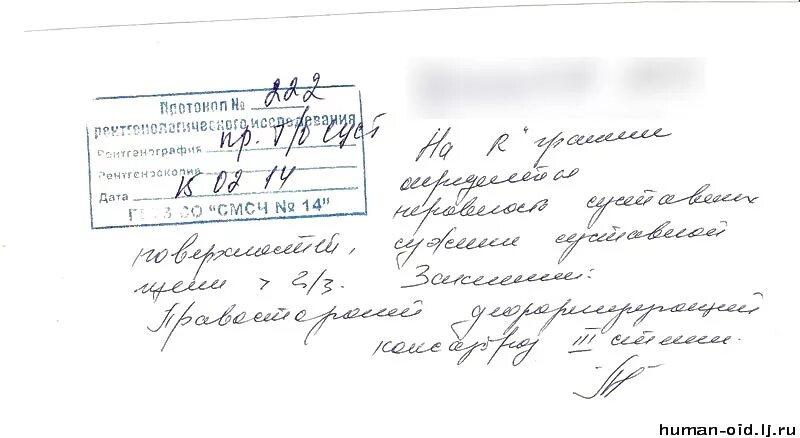 Протокол № 222
рентгенологического исследования
Рентгенография пр. т/б суст
Рентгеноскопия
Дата 15 02 14
ГБУЗ СО "СМСЧ № 14"
На R-грамме
определяется
неровность суставных
поверхностей, сужение суставной
щели > 2/3. Заключение:
Правосторонний деформирующий
коксартроз III степени.
human-oid.lj.ru